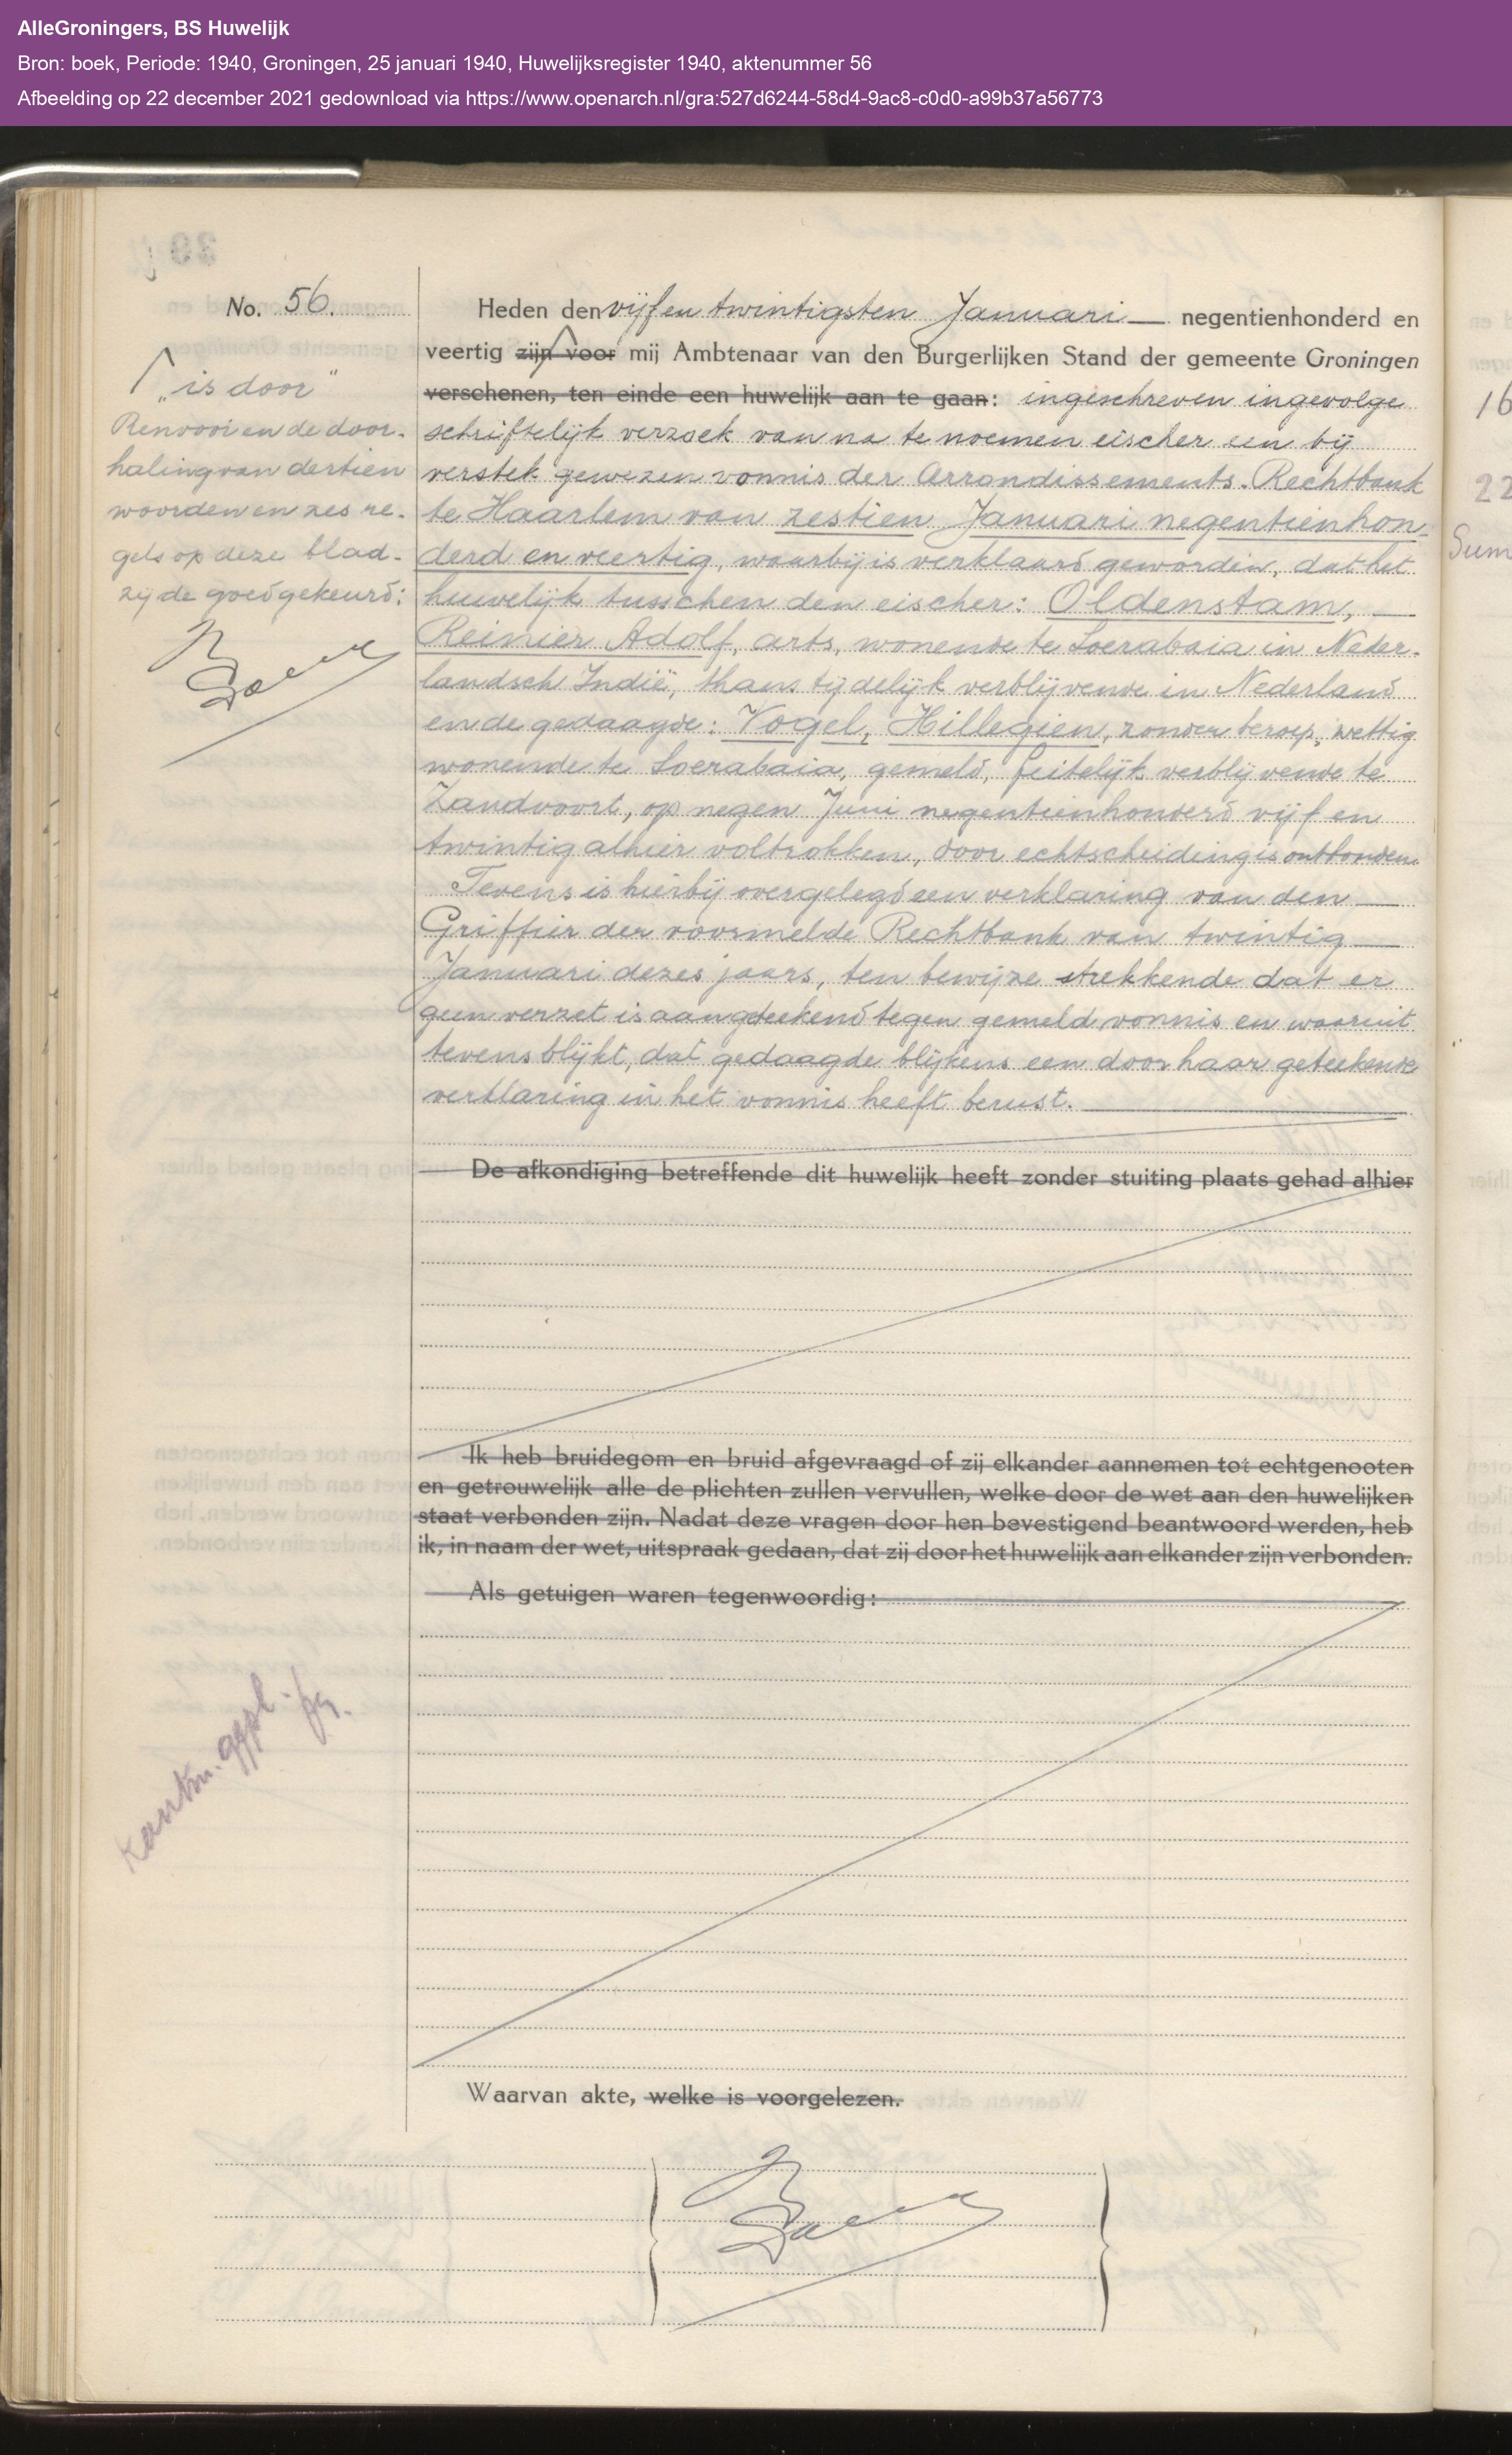 AlleGroningers, BS Huwelijk
Bron: boek, Periode: 1940, Groningen, 25 januari 1940, Huwelijksregister 1940, aktenummer 56
Afbeelding op 22 december 2021 gedownload via https://www.openarch.nl/gra:527d6244-58d4-9ac8-c0d0-a99b37a56773
No. 56.
„is door"
Renvooi en de door-
haling van dertien
woorden en zes re-
gels op deze blad-
zijde goedgekeurd:
Heden den vijfentwintigsten Januari — negentienhonderd en
veertig zijn voor mij Ambtenaar van den Burgerlijken Stand der gemeente Groningen
verschenen, ten einde een huwelijk aan te gaan: ingeschreven ingevolge
schriftelijk verzoek van na te noemen eischer een bij
verstek gewezen vonnis der Arrondissements-Rechtbank
te Haarlem van zestien Januari negentienhon-
derd en veertig, waarbij is verklaard geworden, dat het
huwelijk tusschen den eischer: Oldenstam, —
Reinier Adolf, arts, wonende te Soerabaia in Neder-
landsch Indië, thans tijdelijk verblijvende in Nederland
en de gedaagde: Vogel, Hillegien, zonder beroep, wettig
wonende te Soerabaia, gemeld, feitelijk verblijvende te
Zandvoort, op negen Juni negentienhonderd vijf en
twintig alhier voltrokken, door echtscheiding is ontbonden.
Tevens is hierbij overgelegd een verklaring van den —
Griffier der voormelde Rechtbank van twintig —
Januari dezes jaars, ten bewijze strekkende dat er
geen verzet is aangeteekend tegen gemeld vonnis en waaruit
tevens blijkt, dat gedaagde blijkens een door haar geteekende
verklaring in het vonnis heeft berust.
De afkondiging betreffende dit huwelijk heeft zonder stuiting plaats gehad alhier
Ik heb bruidegom en bruid afgevraagd of zij elkander aannemen tot echtgenooten
en getrouwelijk alle de plichten zullen vervullen, welke door de wet aan den huwelijken
staat verbonden zijn. Nadat deze vragen door hen bevestigend beantwoord werden, heb
ik, in naam der wet, uitspraak gedaan, dat zij door het huwelijk aan elkander zijn verbonden.
Als getuigen waren tegenwoordig:
Waarvan akte, welke is voorgelezen.
16
22
Sum